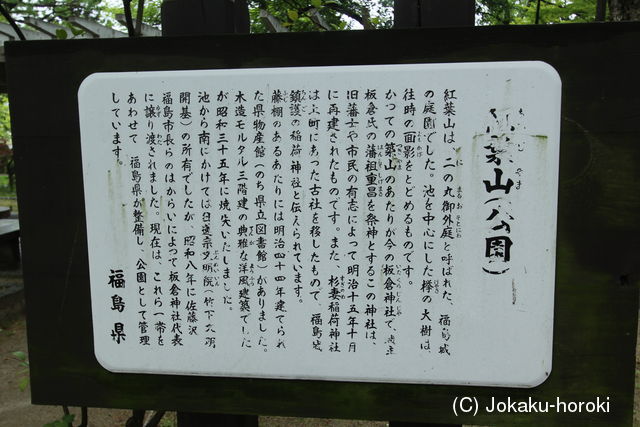 紅葉山(公園)
もみじやま
紅葉山は、二の丸御外庭と呼ばれた、福島城
の庭園でした。池を中心にした欅の大樹は、
往時の面影をとどめるものです。
かつての築山のあたりが今の板倉神社で、藩主
板倉氏の藩祖重昌を祭神とするこの神社は、
旧藩士や市民の有志によって明治十五年十月
に再建されたものです。また、杉妻稲荷神社
は上町にあった古社を移したもので、福島城
鎮護の稲荷神社と伝えられています。
藤棚のあるあたりには明治四十四年建てられ
た県物産館(のち県立図書館)がありました。
木造モルタル三階建の典雅な洋風建築でした
が昭和三十五年に焼失いたしました。
池から南にかけては日蓮宗
開基)の所有でしたが、昭和八年に佐藤沢
福島市長らのはからいによって板倉神社代表
に譲り渡されました。現在は、これら一帯を
あわせて 福島県が整備し、公園として管理
しています。
福島県
(C) Jokaku-horoki